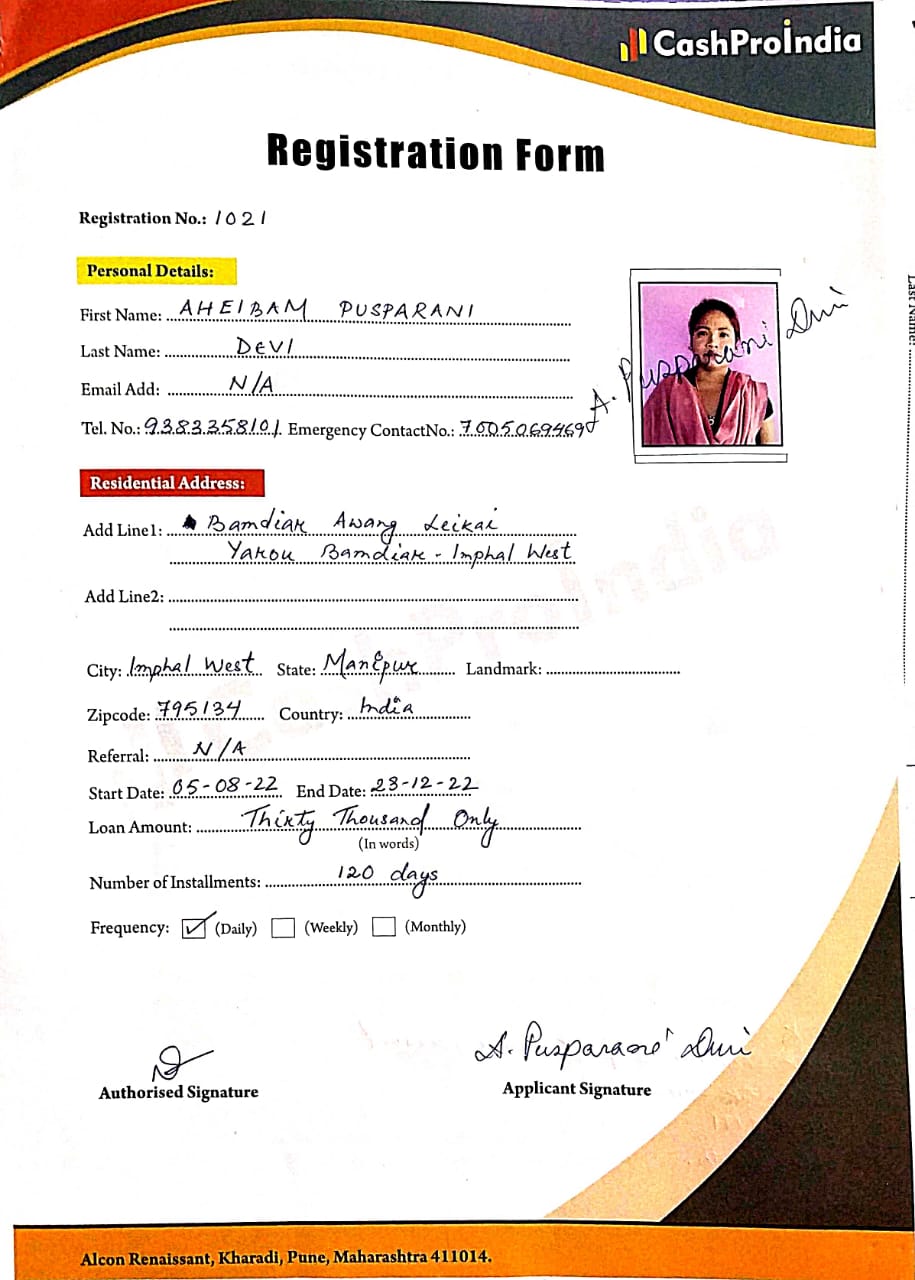 CashProIndia
Registration Form
Registration No.: 1021
Personal Details:
First Name: AHEIBAM PUSPARANI
Last Name: DEVI
Email Add: N/A
Tel. No.: 9383358101 Emergency ContactNo.: 7005069469
A. Pusparani Devi
Residential Address:
Add Line1: Bamdiar Awang Leikai
Yarou Bamdiar - Imphal West
Add Line2:
City: Imphal West State: Manipur Landmark:
Zipcode: 795134 Country: India
Referral: N/A
Start Date: 05-08-22 End Date: 23-12-22
Loan Amount: Thirty Thousand Only
(In words)
Number of Installments: 120 days
Frequency: (Daily) (Weekly) (Monthly)
A. Pusparani Devi
Authorised Signature Applicant Signature
Last Name:
Alcon Renaissant, Kharadi, Pune, Maharashtra 411014.